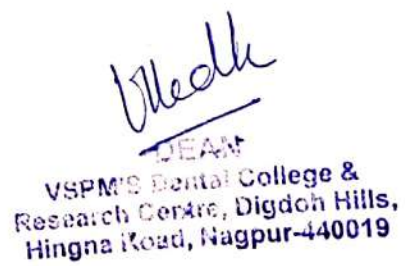 DEAN
VSPM'S Dental College &
Research Centre, Digdoh Hills,
Hingna Road, Nagpur-440019